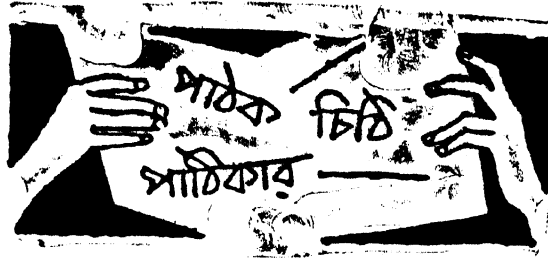 পাঠক / চিঠি
পাঠিকার —